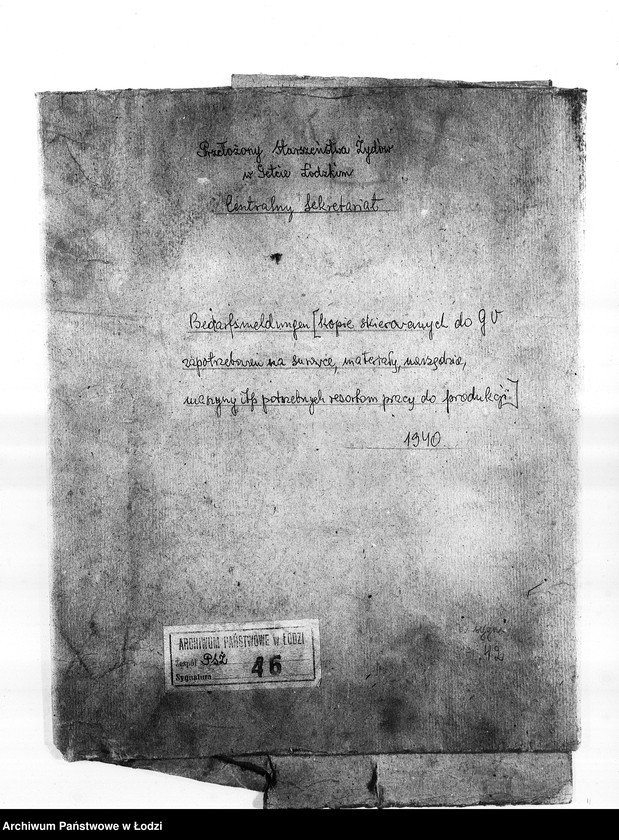 Przełożony Starszeństwa Żydów
w Getcie Łódzkim
Centralny Sekretariat
Bedarfsmeldungen [kopie skierowanych do GV
zapotrzebowań na surowce, materiały, narzędzia,
maszyny itp potrzebnych resortom pracy do produkcji]
1940
ARCHIWUM PAŃSTWOWE w ŁODZI
Zespół PSŻ
Sygnatura 46
42
Archiwum Państwowe w Łodzi